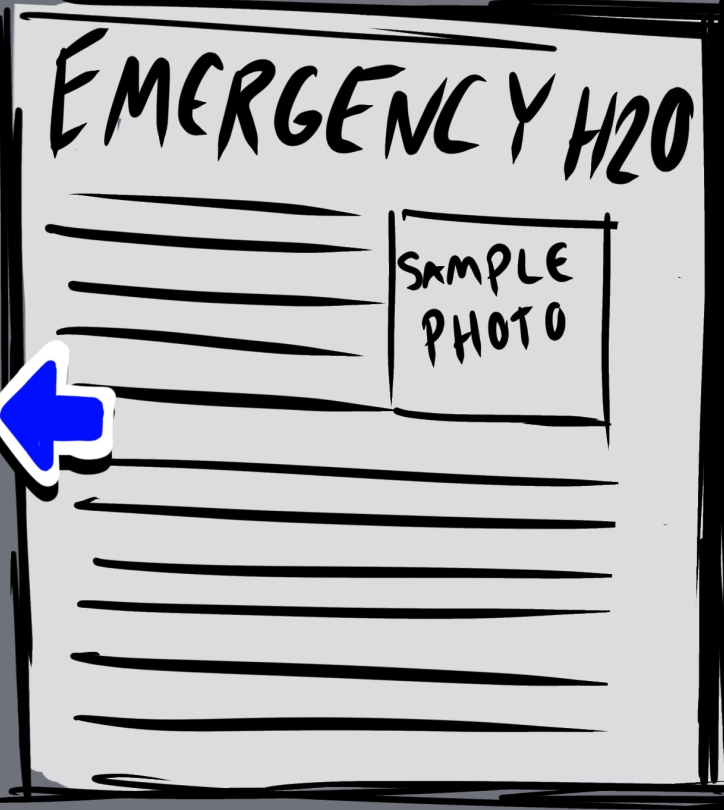 EMERGENCY H2O
SAMPLE
PHOTO